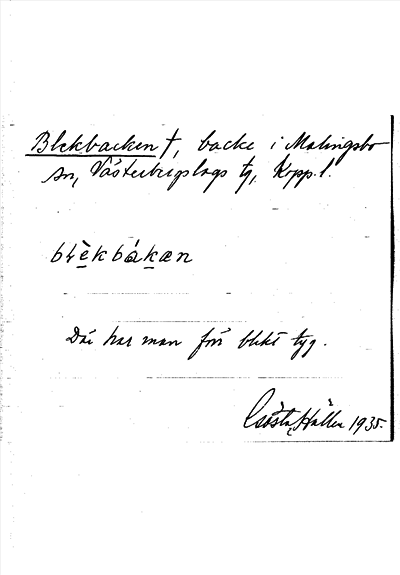 Blekbacken †, backe i Malingsbo
sn, Västerbergslags tg, Kopp. l.
blèkbákan
Där har man förr blekt tyg.
Gösta Häller 1935.